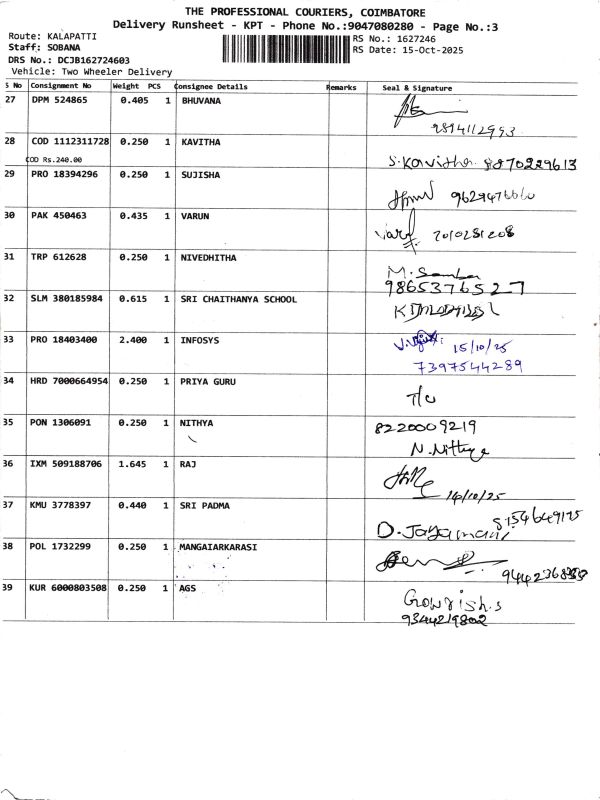 THE PROFESSIONAL COURIERS, COIMBATORE
Delivery Runsheet - KPT - Phone No.:9047080280 - Page No.:3
Route: KALAPATTI
Staff: SOBANA
DRS No.: DCJB162724603
Vehicle: Two Wheeler Delivery
RS No.: 1627246
RS Date: 15-Oct-2025
S No Consignment No Weight PCS Consignee Details Remarks Seal & Signature
27 DPM 524865 0.405 1 BHUVANA
28 COD 1112311728 0.250 1 KAVITHA
COD Rs.240.00
S.Kavitha 8870229613
29 PRO 18394296 0.250 1 SUJISHA
30 PAK 450463 0.435 1 VARUN
31 TRP 612628 0.250 1 NIVEDHITHA
9865376527
32 SLM 380185984 0.615 1 SRI CHAITHANYA SCHOOL
33 PRO 18403400 2.400 1 INFOSYS
15/10/25
7397544289
34 HRD 7000664954 0.250 1 PRIYA GURU
35 PON 1306091 0.250 1 NITHYA
8220009219
N.Nithya
36 IXM 509188706 1.645 1 RAJ
14/10/25
37 KMU 3778397 0.440 1 SRI PADMA
D.Jayamani
38 POL 1732299 0.250 1 MANGAIARKARASI
39 KUR 6000803508 0.250 1 AGS
Gowrish.s
9344219802